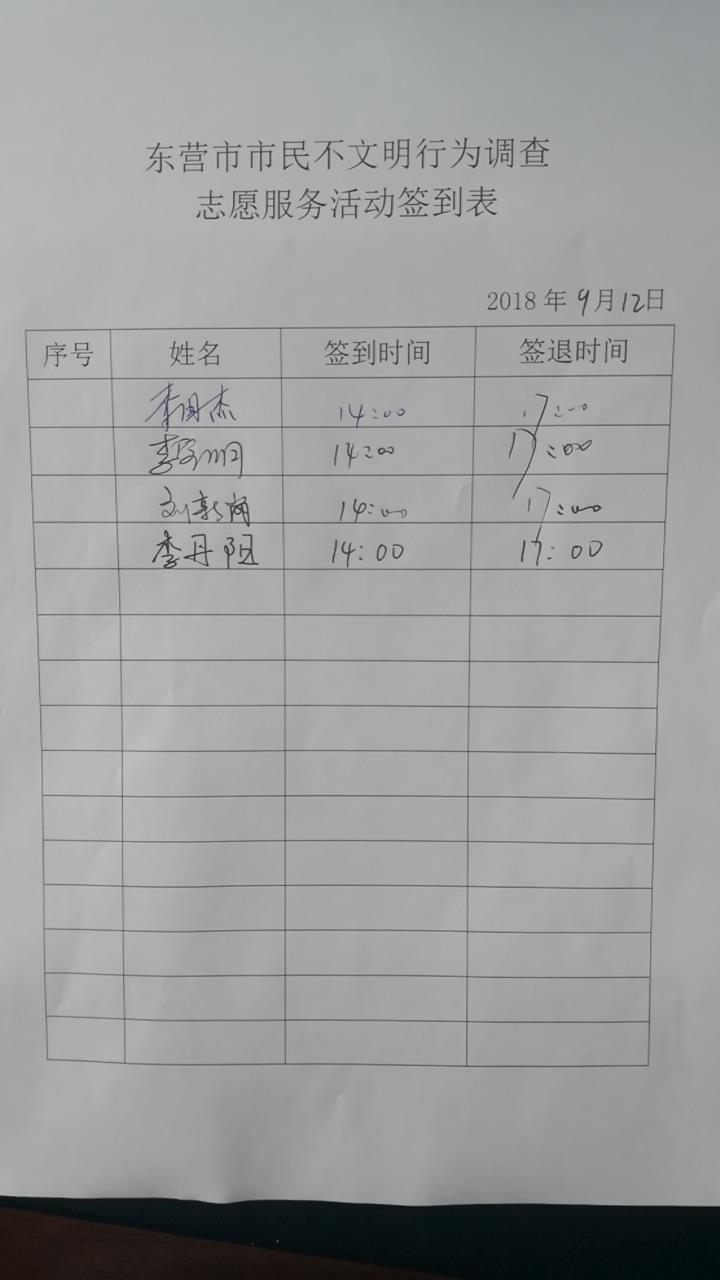 东营市市民不文明行为调查
志愿服务活动签到表
2018年9月12日
序号 姓名 签到时间 签退时间
李国杰 14:00 17:00
李 14:00 17:00
刘新 14:00 17:00
李丹阳 14:00 17:00